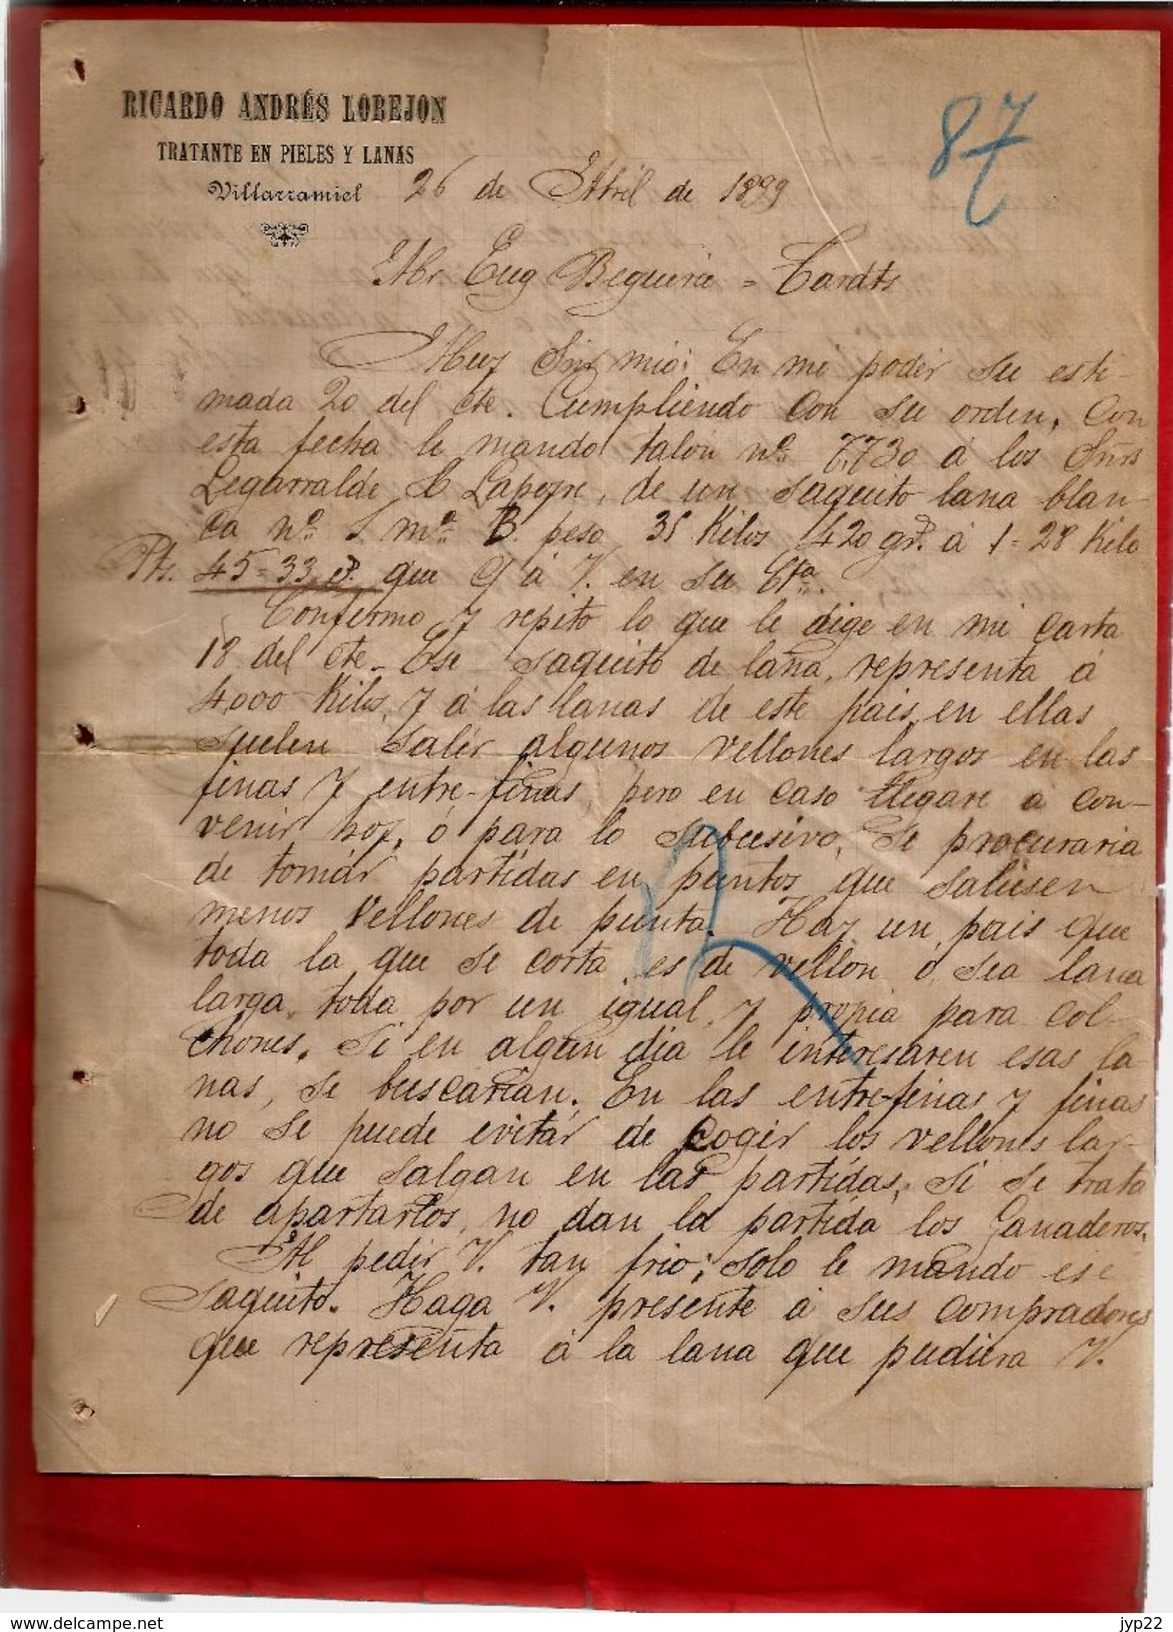 RICARDO ANDRÉS LOBEJON
TRATANTE EN PIELES Y LANAS
Villarramiel
87
26 de Abril de 1899
Mr Eug Beguerie = Tardts
Muy Sñr mio: En mi poder su esti-
mada 20 del cte. Cumpliendo con su orden, con
esta fecha le mando talon nº 7,730 á los Sñrs
Legarralde & Lapeyre, de un saquito lana blan-
ca nº 1. mª B. peso 35 Kilos 420 gr. á 1=28 Kilo
Pts. 45=33 que á V. en su Cta.
Confirmo y repito lo que le dige en mi carta
18 del cte. Ese saquito de lana, representa á
4,000 Kilos, y á las lanas de este pais, en ellas
suelen salir algunos vellones largos en las
finas y entre-finas, pero en caso llegare á con-
venir hoy, ó para lo subcesivo, se procuraria
de tomár partidas en puntos que saliesen
menos vellones de punta. Hay un pais que
toda la que se corta es de vellón ó sea lana
larga toda por un igual, y propia para col-
chones. Si en algun dia le interesaren esas la-
nas, se buscarian. En las entre-finas y finas
no se puede evitár de coger los vellones lar-
gos que salgan en las partidas, si se trata
de apartarlos, no dan la partida los Ganaderos.
Al pedir V. tan frio; solo le mando ese
saquito. Haga V. presente á sus compradores
que representa á la lana que pudiera V.
delcampe.net
jyp22